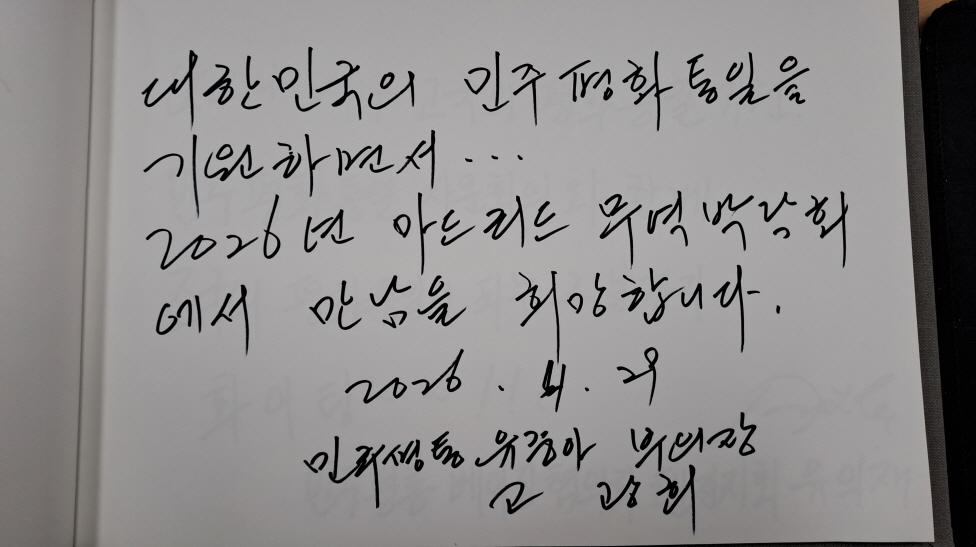 대한민국의 민주평화통일을
기원하면서...
2026년 마드리드 무역박람회
에서 만남을 희망합니다.
2026. 4. 29
민주평통 유중아 부의장
고광희